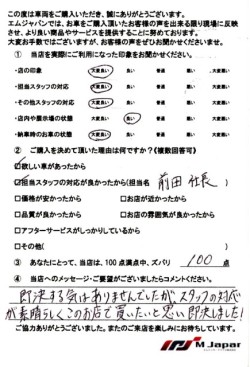 この度は車両をご購入いただき、誠にありがとうございます。
エムジャパンでは、お車をご購入頂いたお客様の声を出来る限り現場に反映
させ、より良い商品やサービスを提供することに努めております。
大変お手数ではございますが、お客様の声をぜひお聞かせくださいませ。
① 当店を実際にご利用になった印象をお聞かせください。
・店の印象 大変良い 良い 普通 悪い 大変悪い
・担当スタッフの対応 大変良い 良い 普通 悪い 大変悪い
・その他スタッフの対応 大変良い 良い 普通 悪い 大変悪い
・店内や展示場の状態 大変良い 良い 普通 悪い 大変悪い
・納車時のお車の状態 大変良い 良い 普通 悪い 大変悪い
② ご購入を決めて頂いた理由は何ですか？（複数回答可）
欲しい車があったから
担当スタッフの対応が良かったから（担当名 前田社長）
□価格が安かったから □お店が近かったから
□品質が良かったから □お店の雰囲気が良かったから
□アフターサービスがしっかりしているから
□その他（ ）
③ あなたにとって、当店は、100点満点中、ズバリ 100 点
④ 当店へのメッセージ・ご要望がございましたらコメントください。
即決する気はありませんでしたが、スタッフの対応
が素晴らしくこのお店で買いたいと思い即決しました！
ご協力ありがとうございました。またのご来店を楽しみにお待ちしています。
M Japan